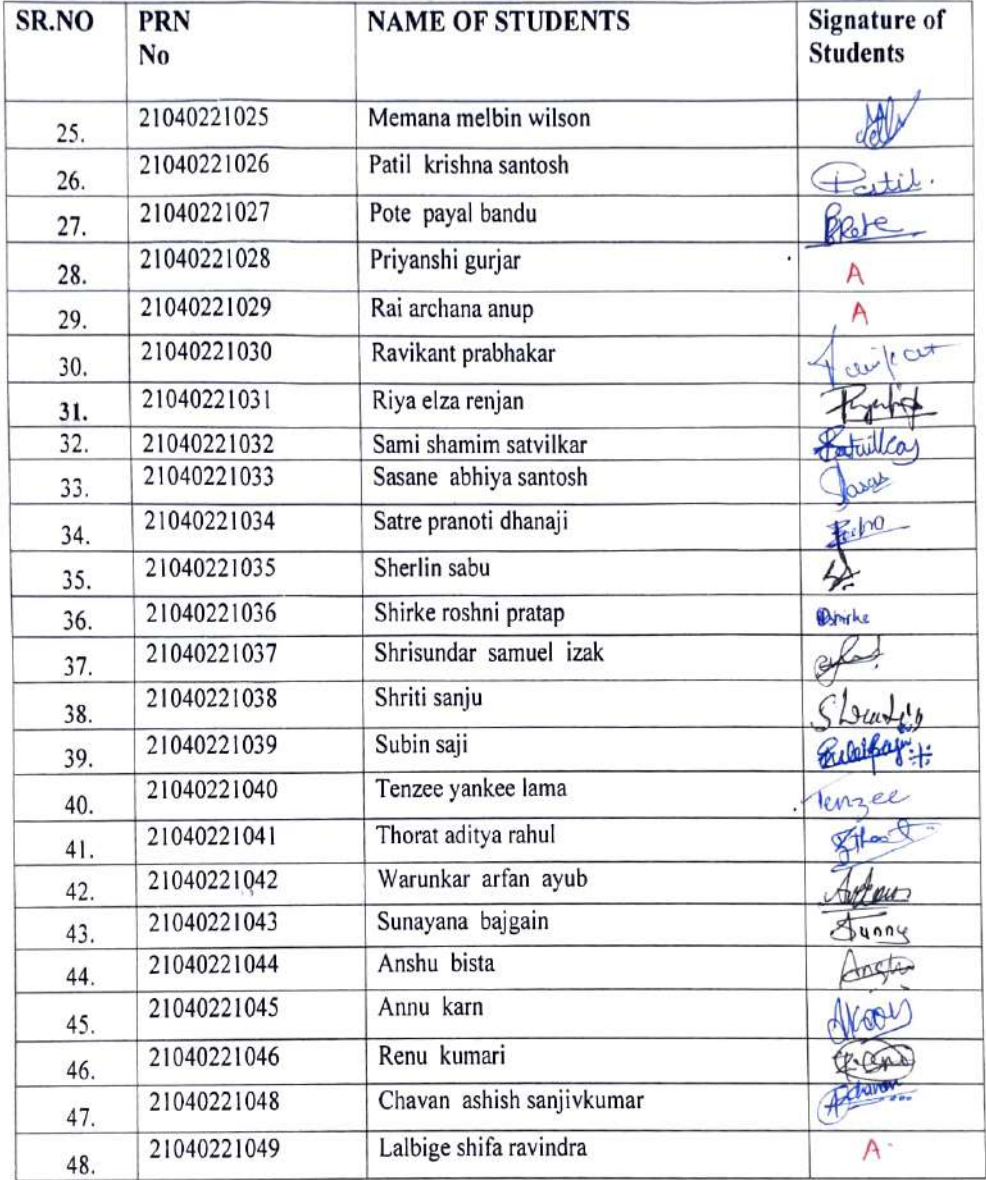 SR.NO PRN No NAME OF STUDENTS Signature of Students
25. 21040221025 Memana melbin wilson
26. 21040221026 Patil krishna santosh Patil.
27. 21040221027 Pote payal bandu PPote
28. 21040221028 Priyanshi gurjar A
29. 21040221029 Rai archana anup A
30. 21040221030 Ravikant prabhakar
31. 21040221031 Riya elza renjan
32. 21040221032 Sami shamim satvilkar
33. 21040221033 Sasane abhiya santosh
34. 21040221034 Satre pranoti dhanaji
35. 21040221035 Sherlin sabu
36. 21040221036 Shirke roshni pratap
37. 21040221037 Shrisundar samuel izak
38. 21040221038 Shriti sanju
39. 21040221039 Subin saji
40. 21040221040 Tenzee yankee lama Tenzee
41. 21040221041 Thorat aditya rahul
42. 21040221042 Warunkar arfan ayub
43. 21040221043 Sunayana bajgain Sunny
44. 21040221044 Anshu bista
45. 21040221045 Annu karn
46. 21040221046 Renu kumari
47. 21040221048 Chavan ashish sanjivkumar
48. 21040221049 Lalbige shifa ravindra A